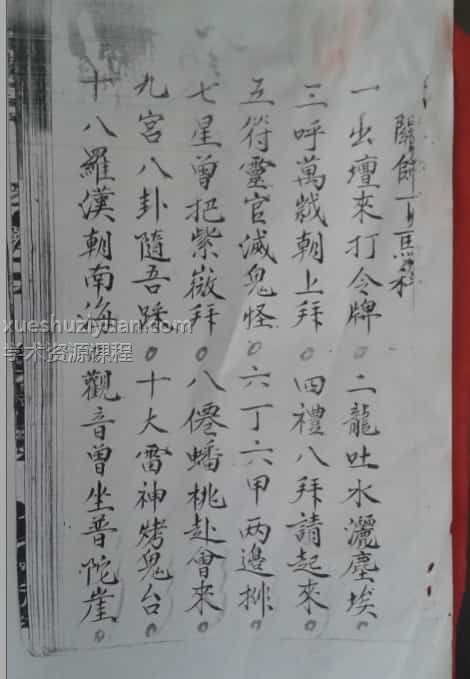 關師下馬科
一出壇來打令牌。二龍吐水灑塵埃。
三呼萬歲朝上拜。四禮八拜請起來。
五符靈官滅鬼怪。六丁六甲两邉排。
七星曾把紫㣲拜。八僊蟠桃赴會來。
九宮八卦隨吾踩。十大雷神烤鬼台。
十八羅漢朝南海。觀音曽坐普陀崖。
xueshuziyuan.com
学术资源课程